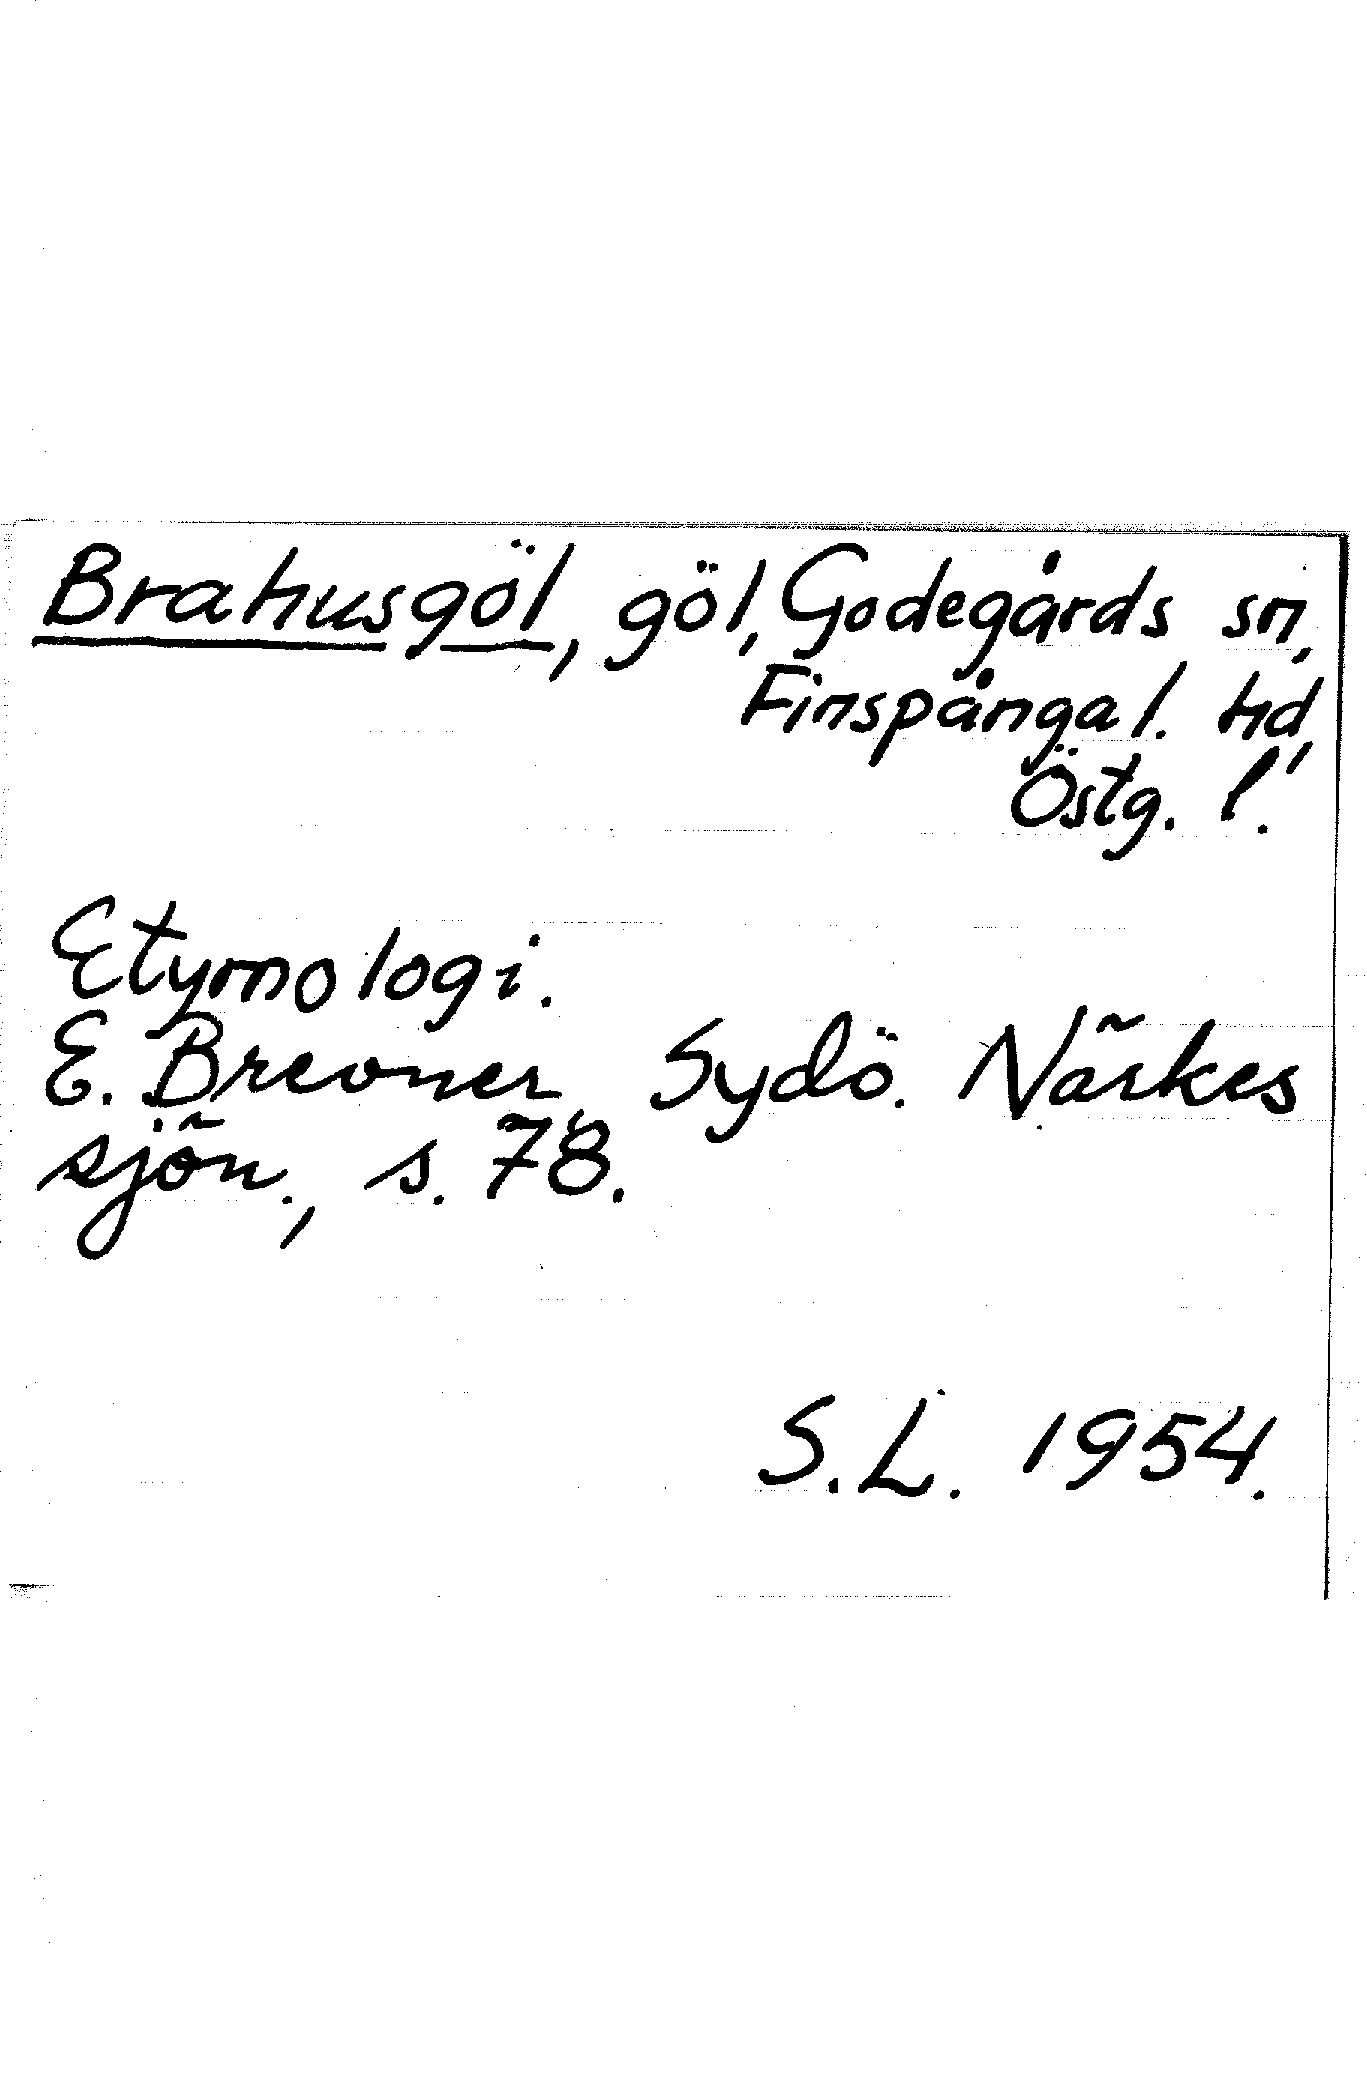 Brahusgöl, göl, Godegårds sn,
Finspångal. hd,
Östg. l.
Etymologi.
E. Brevner, Sydö. Närkes
sjön., s. 78.
S.L. 1954.